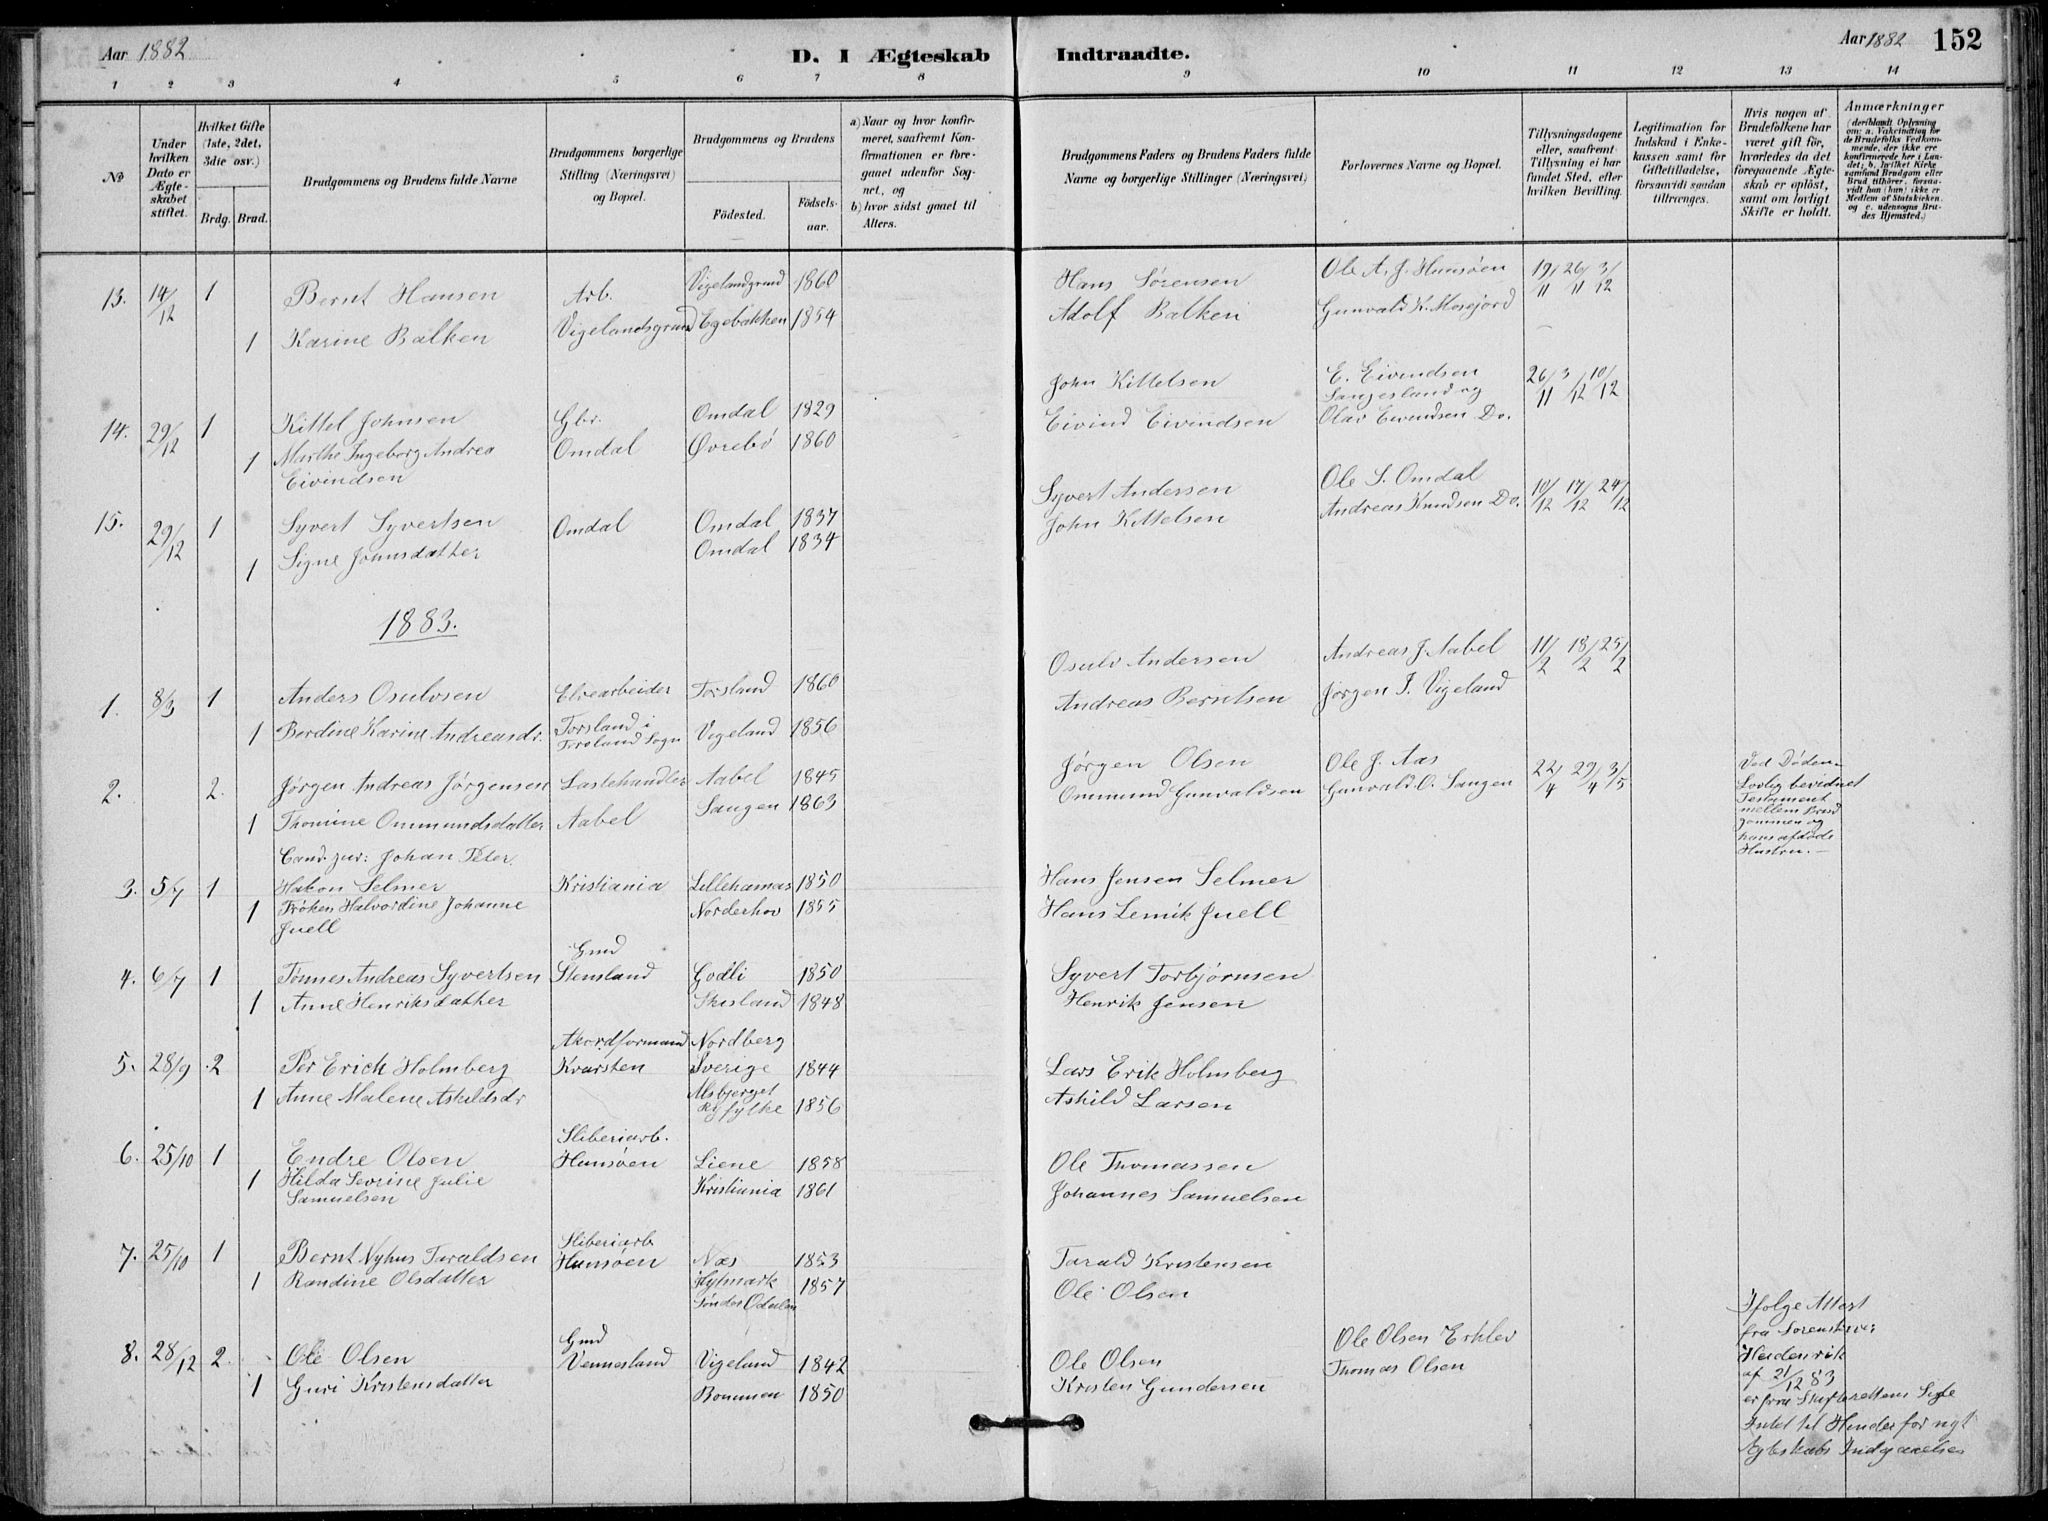 Aar 1882
D. I Ægteskab Indtraadte.
Aar 1882 152
1 2 3 4 5 6 7 8 9 10 11 12 13 14
No
Under hvilken Dato er Ægteskabet stiftet.
Hvilket Gifte (1ste, 2det, 3die osv.)
Brdg. Brud.
Brudgommens og Brudens fulde Navne
Brudgommens borgerlige Stilling (Næringsvei) og Bopæl.
Brudgommens og Brudens
Födested. Födselsaar.
a) Naar og hvor konfirmeret, saafremt Konfirmationen er foregaaet udenför Sognet, og
b) hvor sidst gaaet til Alters.
Brudgommens Faders og Brudens Faders fulde Navne og borgerlige Stillinger (Næringsvei)
Forlovernes Navne og Bopæl.
Tillysningsdagene eller, saafremt Tillysning ei har fundet Sted, efter hvilken Bevilling.
Legitimation for Indskud i Enkekassen samt for Giftetilladelse, forsaavidt saadan tiltrænges.
Hvis nogen af Brudefolkene har været gift för, hvorledes da det foregaaende Ægteskab er oplöst, samt om lovligt Skifte er holdt.
Anmærkninger
(deriblandt Oplysning om: a. Vakcination for de Brudefolks Vedkommende, der ikke ere konfirmerede her i Landet; b. hvilket Kirkesamfund Brudgom eller Brud tilhörer, forsaavidt han (hun) ikke er Medlem af Statskirken og c. udensogns Brudes Hjemsted.)
13. 14/12 1 Bernt Hansen Arb. Vigelandgrund 1860 Hans Sørensen Ole A. J. Hunsøen 19/11 26/11 3/12
1 Karine Balken Vigelandsgrund Egebakken 1854 Adolf Balken Gunvald K. Mosejord
14. 29/12 1 Kittel Johnsen Gbr. Omdal 1829 John Kittelsen E. Eivindsen 26/11 3/12 10/12
Sangesland og
1 Marthe Ingeborg Andrea Omdal Øvrebø 1860 Eivind Eivindsen Olav Eivendsen Do.
Eivindsen
15. 29/12 1 Syvert Syvertsen Omdal Omdal 1837 Syvert Andersen Ole S. Omdal 10/12 17/12 24/12
1 Signe Johnsdatter Omdal 1834 John Kittelsen Andreas Knudsen Do.
1883.
1. 8/3 1 Anders Osulvsen Elvearbeider Torsland 1860 Osulv Andersen Andreas J. Aabel 11/2 18/2 25/2
1 Berdine Karine Andreasdr. Torsland i Vigeland 1856 Andreas Berntsen Jørgen J. Vigeland
Torsland Sogn
2. 2. Jørgen Andreas Jørgensen Lastehandler Aabel 1845 Jørgen Olsen Ole J. Aas 22/4 29/4 3/5 Ved Døden
1 Thomine Ommundsdatter Aabel Sangen 1863 Ommund Gunvaldsen Gunvald O. Sangen Lovlig bevidnet
Testament
mellem Brud
gommen og
hans afdøde
Hustru. —
Cand. jur: Johan Peter
3. 5/7 1 Hakon Selmer Kristiania Lillehamar 1850 Hans Jensen Selmer
1 Frøken Halvordine Johanne Norderhov 1855 Hans Lemik Juell
Juell
Gmd
4. 6/7 1 Tønnes Andreas Syvertsen Stensland Godli 1850 Syvert Torbjørnsen
1 Anne Henriksdatter Skisland 1848 Henrik Jensen
Akordformand Nordberg
5. 28/9 2 Per Erich Holmberg Kvarsten Sverige 1844 Lars Erik Holmberg
1 Anne Malene Askildsdr Alsbjerget 1856 Askild Larsen
Ryfylke
Sliberiarb.
6. 25/10 1 Endre Olsen Hunsøen Liene 1858 Ole Thomassen
1 Hilda Sevrine Julie Kristiania 1861 Johannes Samuelsen
Samuelsen
Sliberiarb
7. 25/10 1 Bernt Nyhus Taraldsen Hunsøen Næs 1853 Tarald Kristensen
1 Randine Olsdatter 1857 Ole Olsen
Gmd
8. 28/12 2. Ole Olsen Vennesland Vigeland 1842 Ole Olsen Ole Olsen
1 Guri Kristensdatter Bommen 1850 Kristen Gundersen Thomas Olsen
Ifølge Attest
fra Sorenskriver
Heidenrik
af 21/12 83
er fra Skifterettens Side
Intet til Hinder for nyt
Ægteskabs Indgaaelse